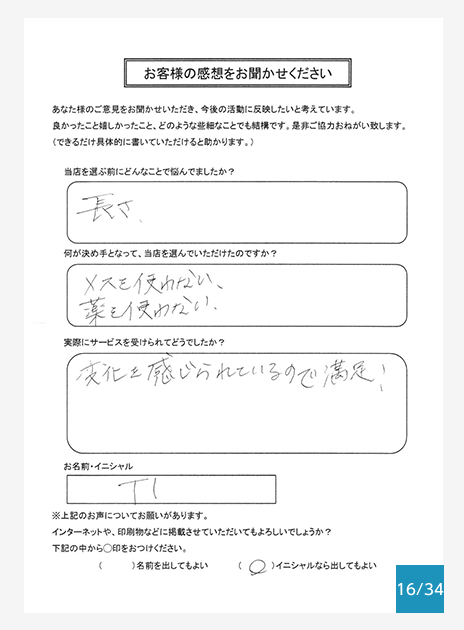 お客様の感想をお聞かせください
あなた様のご意見をお聞かせいただき、今後の活動に反映したいと考えています。
良かったこと嬉しかったこと、どのような些細なことでも結構です。是非ご協力おねがい致します。
(できるだけ具体的に書いていただけると助かります。)
当店を選ぶ前にどんなことで悩んでましたか?
長さ、
何が決め手となって、当店を選んでいただけたのですか?
メスを使わない、
薬を使わない、
実際にサービスを受けられてどうでしたか?
変化を感じられているので満足!
お名前・イニシャル
T I
※上記のお声についてお願いがあります。
インターネットや、印刷物などに掲載させていただいてもよろしいでしょうか?
下記の中から○印をおつけください。
( )名前を出してもよい (○)イニシャルなら出してもよい
16/34